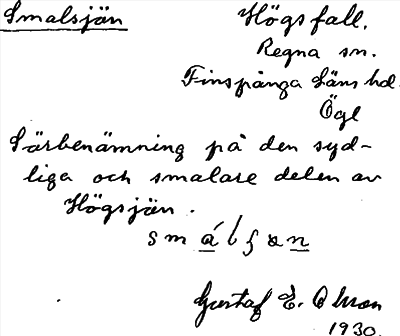 Smalsjön Högsfall.
Regna sn.
Finspånga läns hd.
Ögl
Särbenämning på den syd-
liga och smalare delen av
Högsjön.
Gustaf E. Olsson
1930.